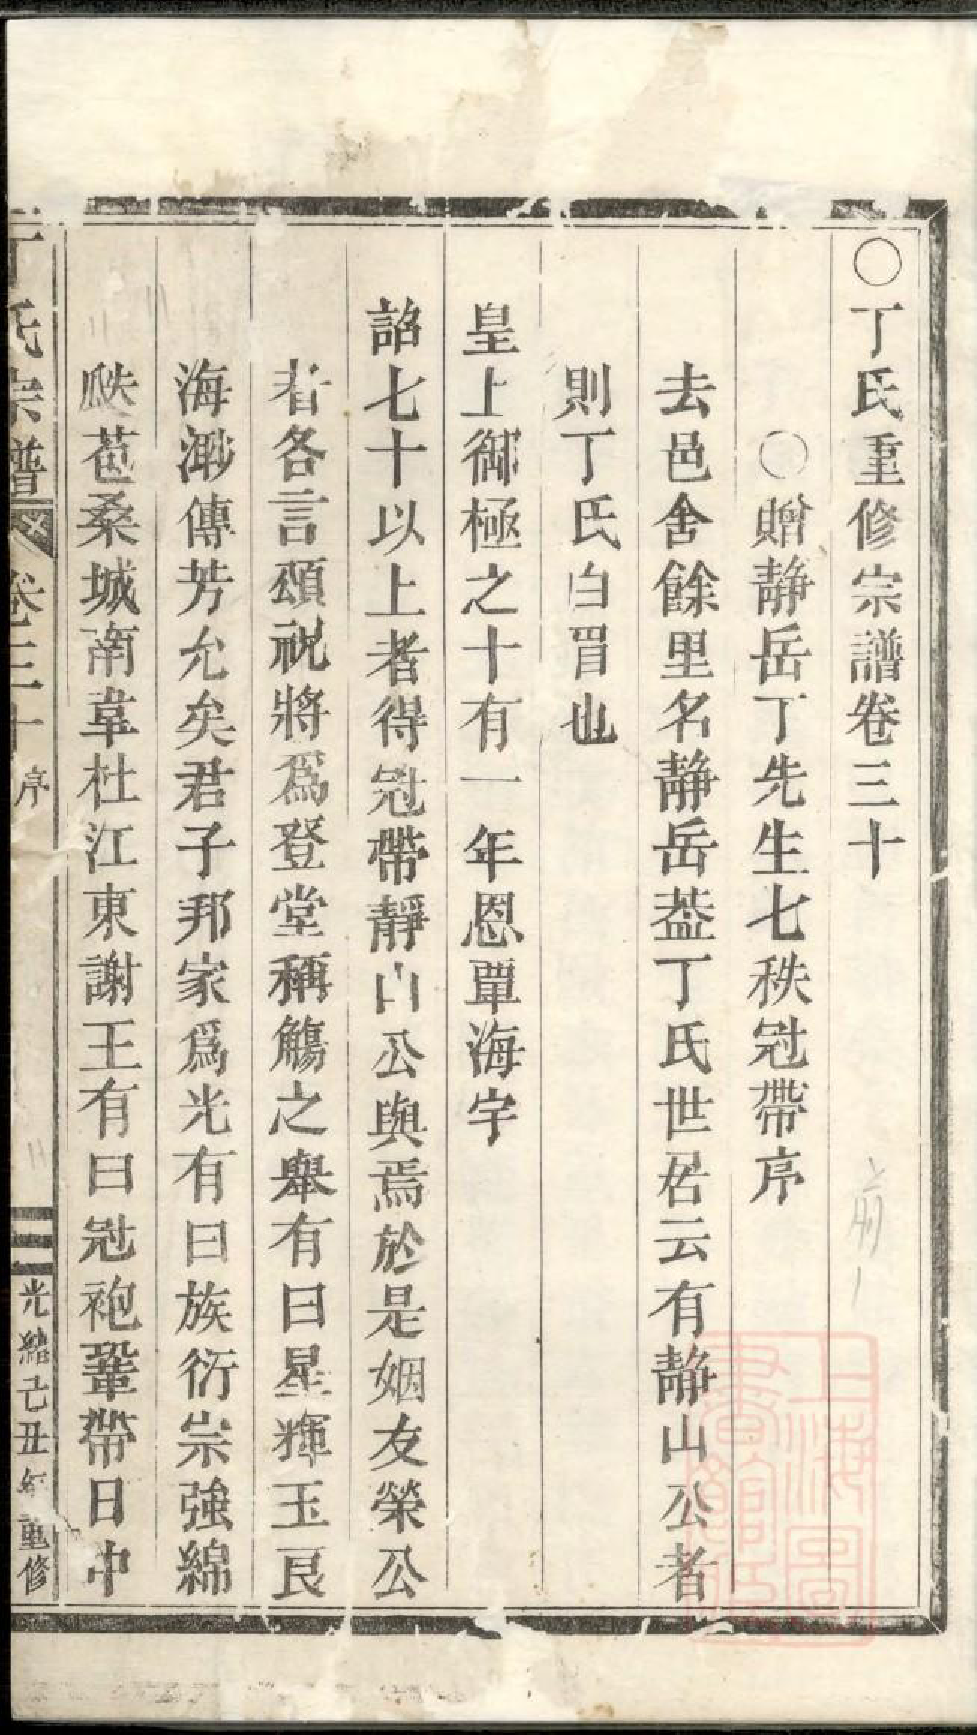 〇丁氏重修宗譜卷三十
〇贈靜岳丁先生七秩冠帶序
去邑舍餘里名靜岳葢丁氏世居云有靜山公者
則丁氏白眉也
皇上御極之十有一年恩覃海宇
詔七十以上者得冠帶靜山公與焉於是姻友榮公
者各言頌祝將爲登堂稱觴之舉有曰星輝玉艮
海渺傳芳允矣君子邦家爲光有曰族衍宗強綿
瓞苞桑城南韋杜江東謝王有曰冠袍鞶帶日中
丁氏宗譜 卷三十 序 光緒己丑年重修
上海圖書館藏